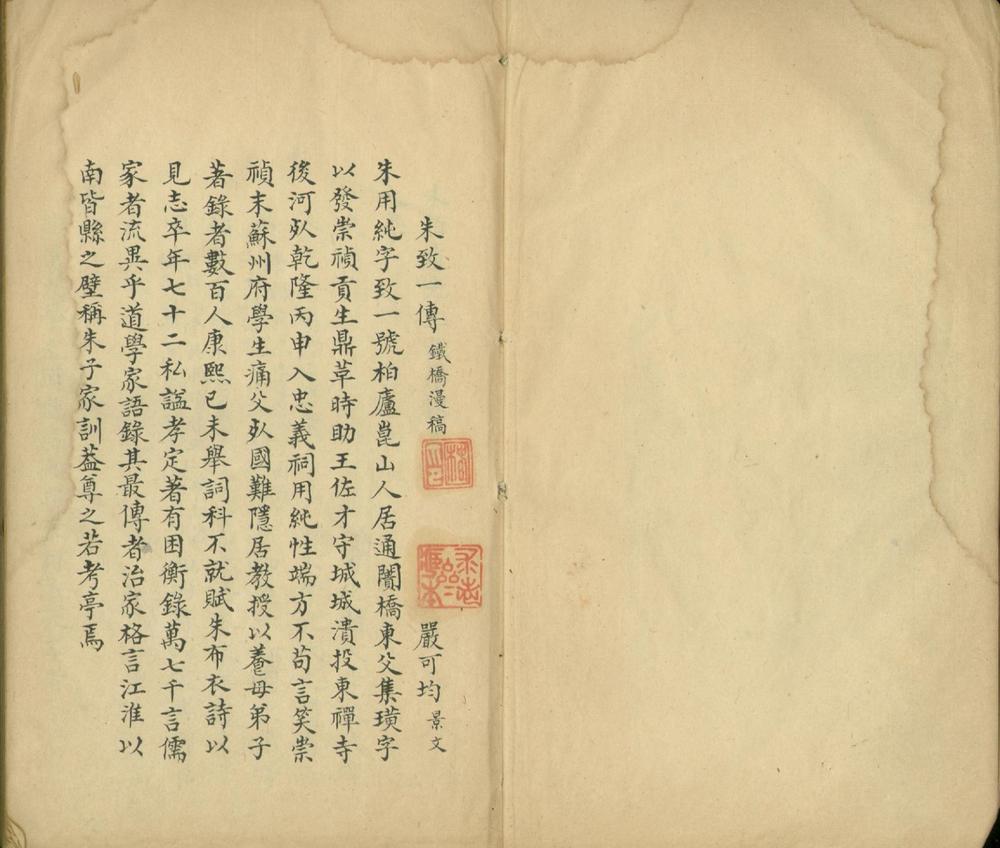 朱致一傳 鐵橋漫稿 嚴可均 景文
朱用純字致一號柏廬崑山人居通闠橋東父集璜字
以發崇禎貢生鼎革時助王佐才守城城潰投東禪寺
後河㱙乾隆丙申入忠義祠用純性端方不苟言笑崇
禎末蘇州府學生痛父㱙國難隱居教授以養母弟子
著錄者數百人康熙己未舉詞科不就賦朱布衣詩以
見志卒年七十二私謚孝定著有困衡錄萬七千言儒
家者流異乎道學家語錄其最傳者治家格言江淮以
南皆縣之壁稱朱子家訓葢尊之若考亭焉